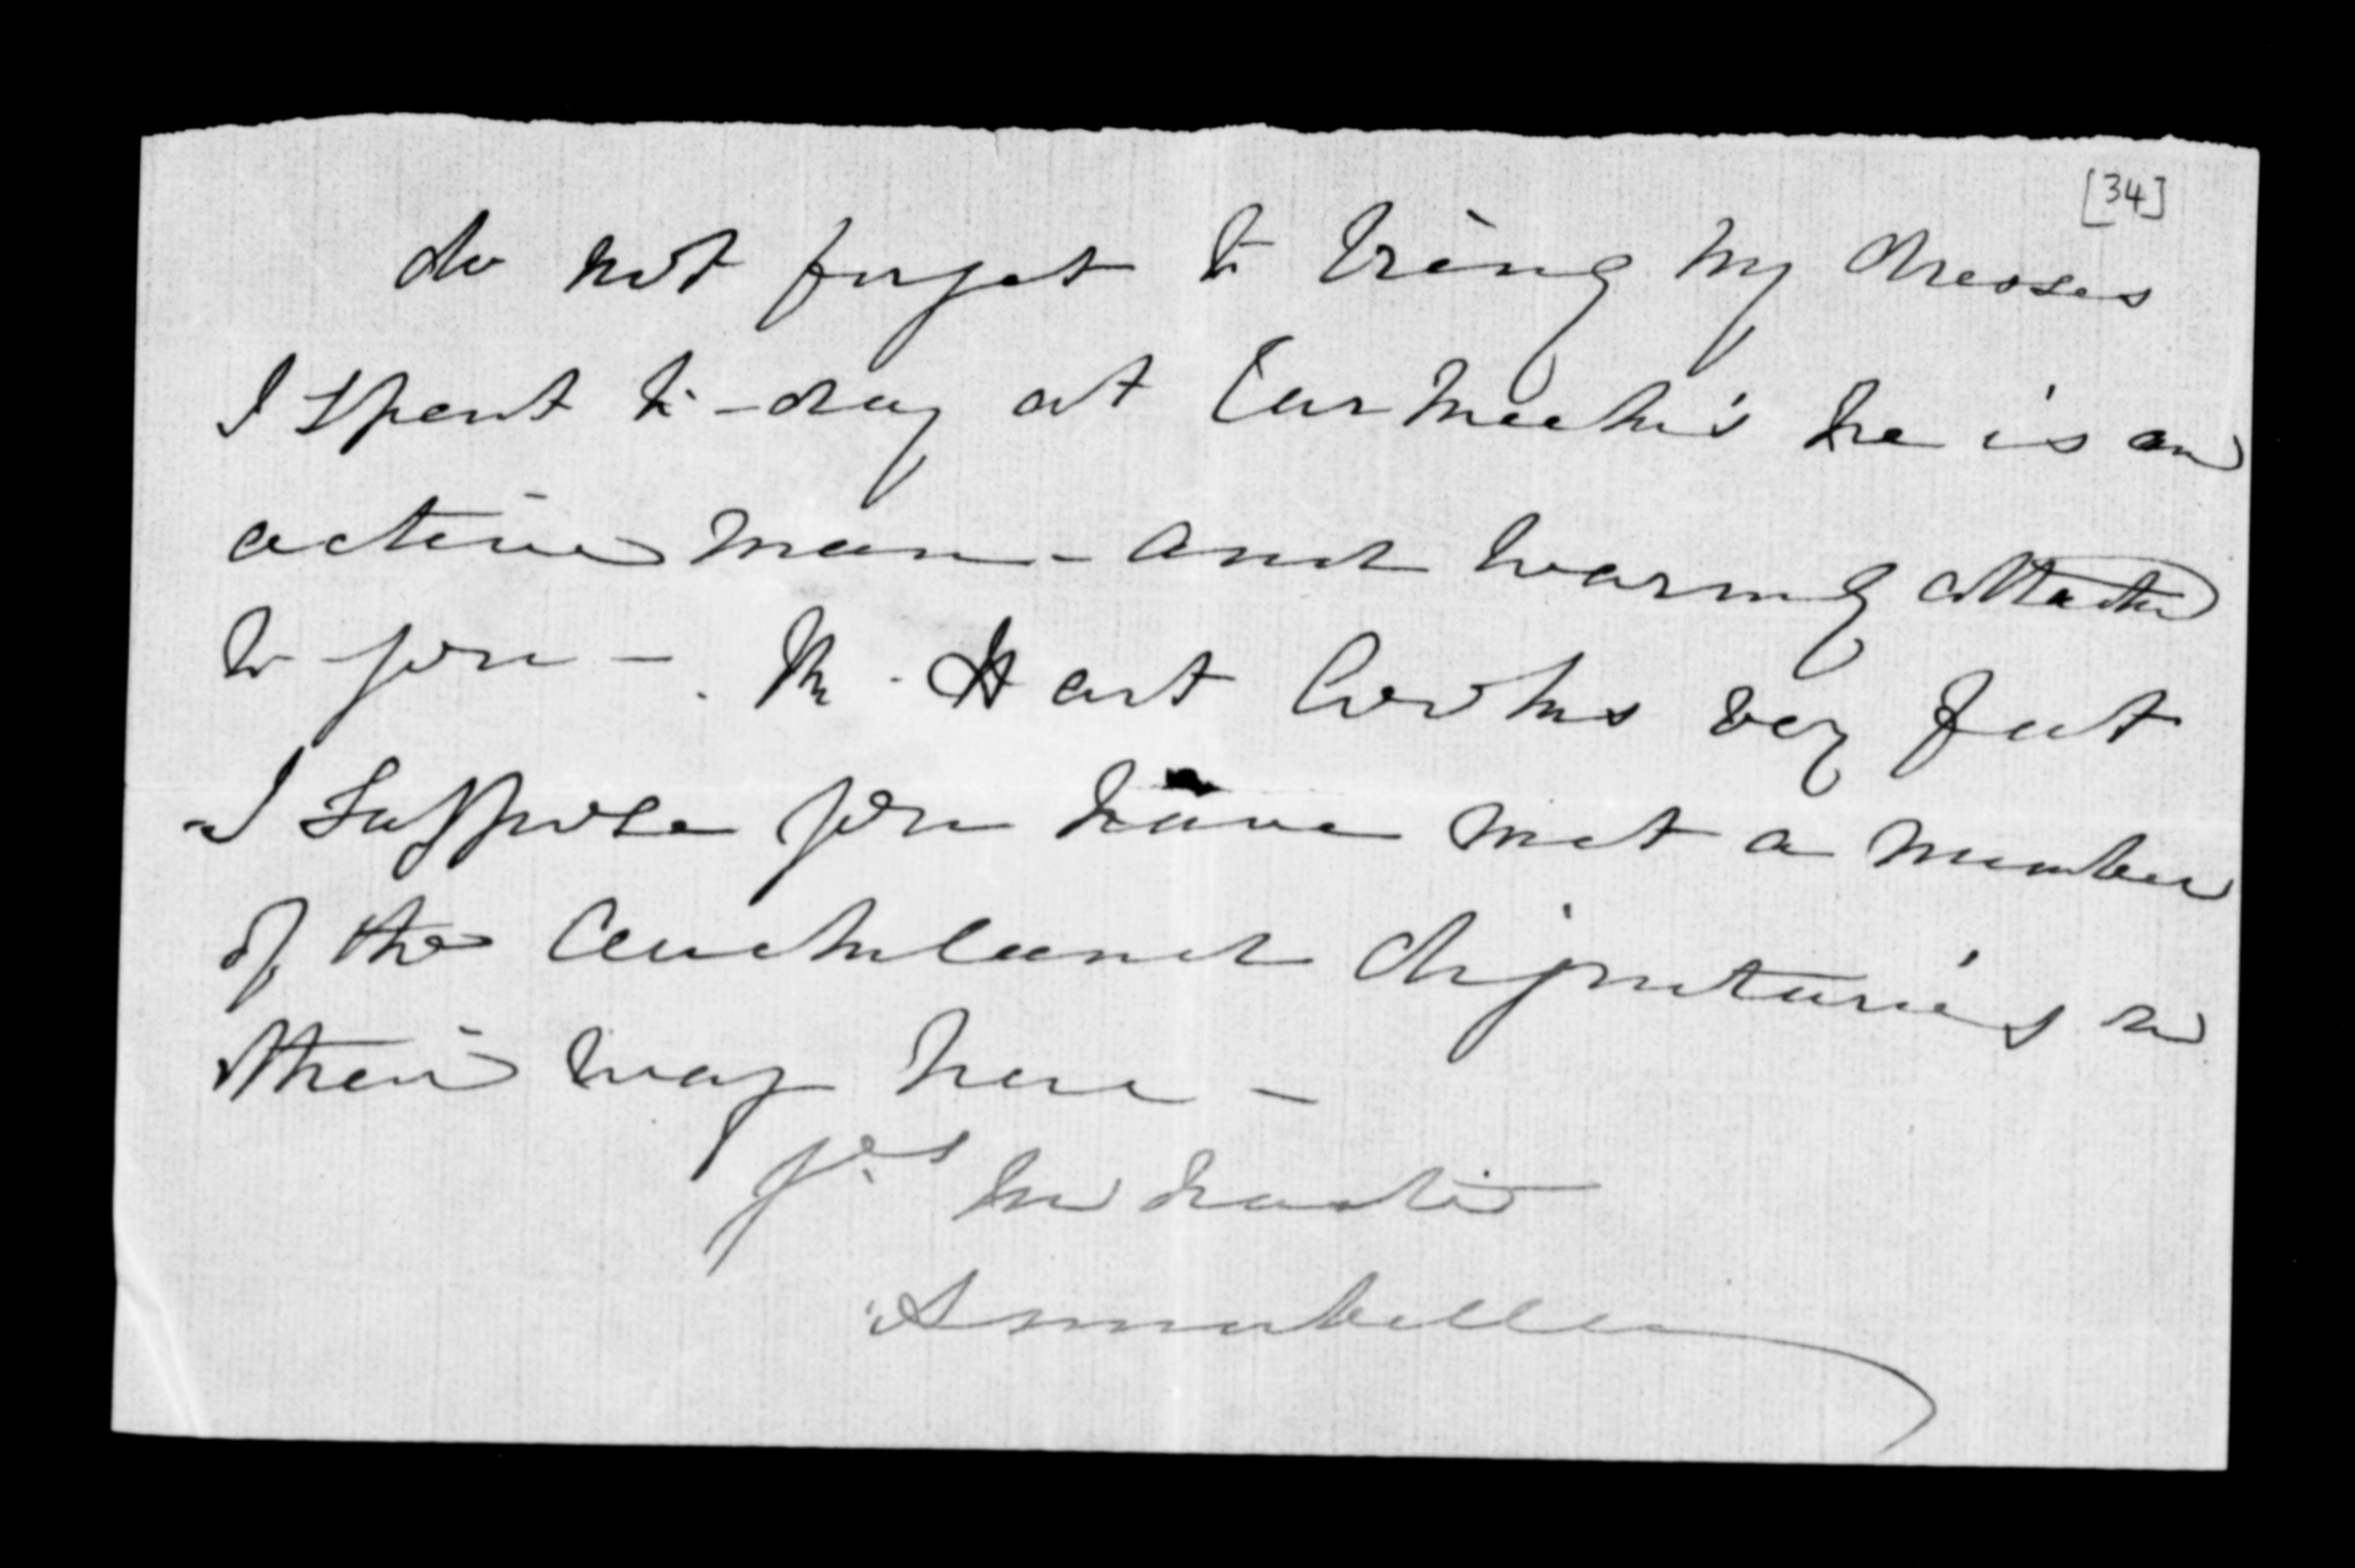 [34]
do not forget to bring my dresses
I spent to-day at he is an
active man - and warmly attached
to you - . Mr. Hart looks very fat
I suppose you have met a number
of the Auckland dignitaries on
their way here -
yrs in haste
Annabella